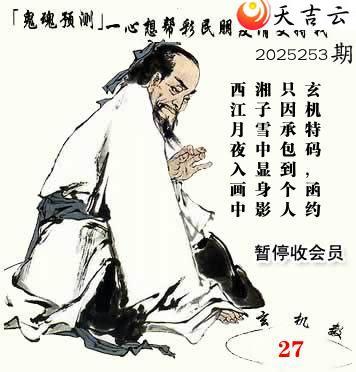 「鬼魂预测」一心想帮彩民朋友
天吉云
2025253期
玄机特码，函约
只因承包到个人
湘子雪中显身影
西江月夜入画中
暂停收会员
玄机
27